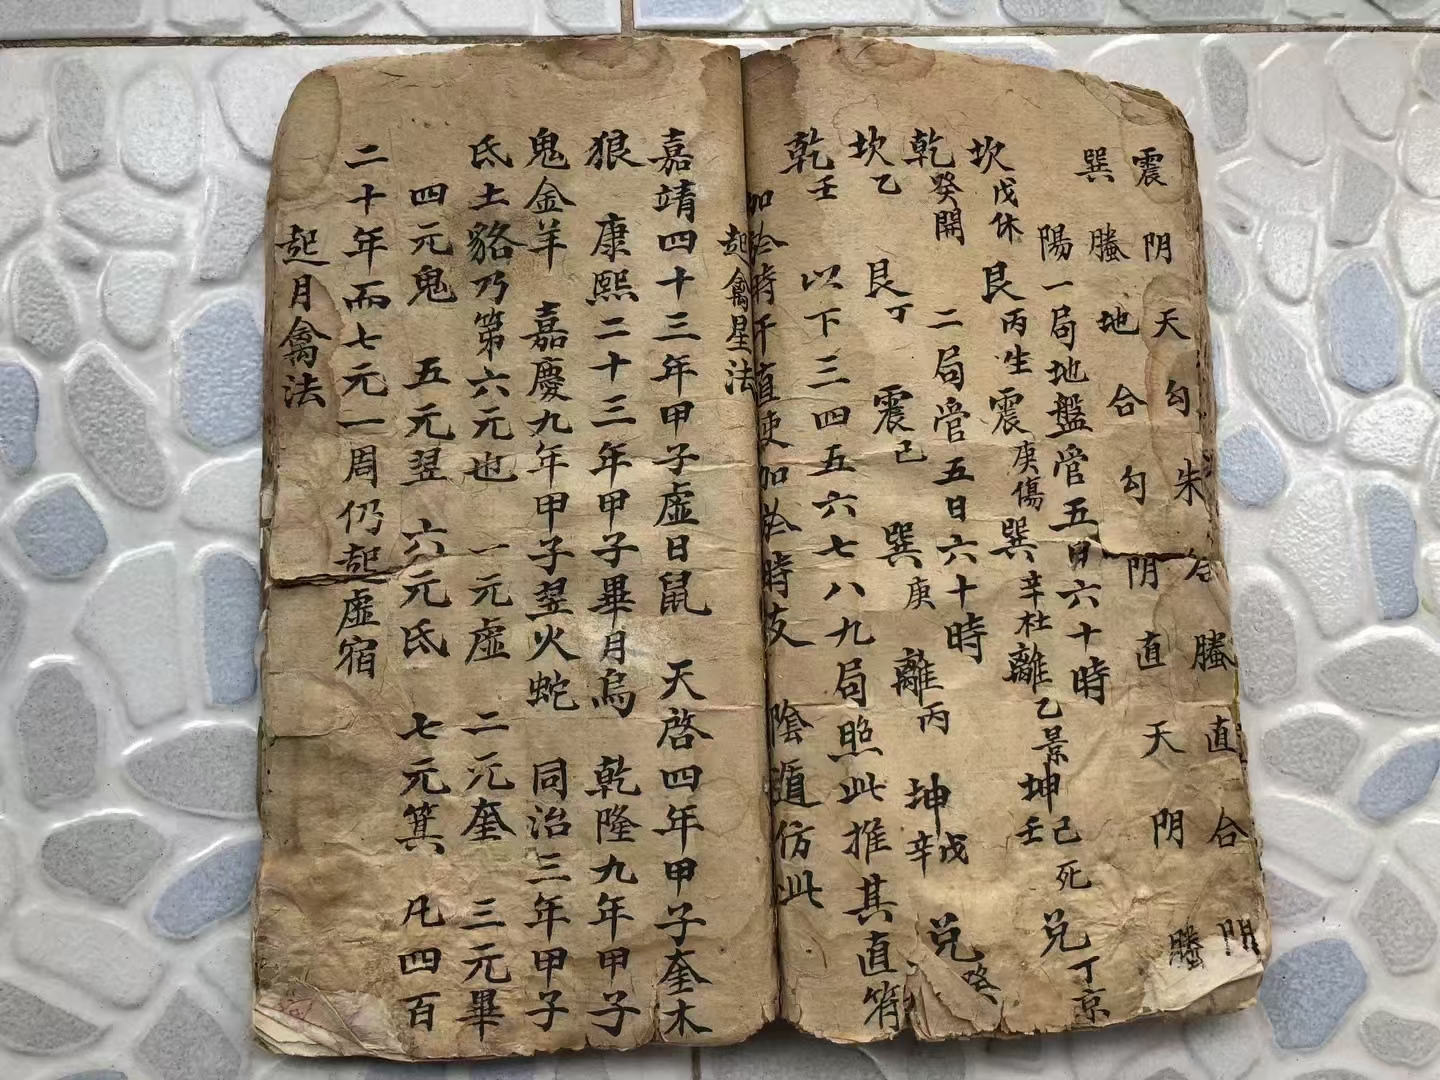 震 阴 天 勾 朱 合 螣 直 合 阴
巽 螣 地 合 勾 阴 直 天 阴 螣
陽一局地盤管五日六十時
坎戊休 艮丙生 震庚傷 巽辛杜 離乙景 坤己壬死 兌丁京
乾癸開 二局管五日六十時
坎乙 艮丁 震己 巽庚 離丙 坤戊辛 兌癸
乾壬 以下三四五六七八九局照此推其直符
加於時干直使加於時支 陰遁仿此
起禽星法
嘉靖四十三年甲子虚日鼠 天啓四年甲子奎木
狼 康熙二十三年甲子畢月烏 乾隆九年甲子
鬼金羊 嘉慶九年甲子翌火蛇 同治三年甲子
氐土貉乃第六元也 一元虚 二元奎 三元畢
四元鬼 五元翌 六元氐 七元箕 凡四百
二十年而七元一周仍起虚宿
起月禽法